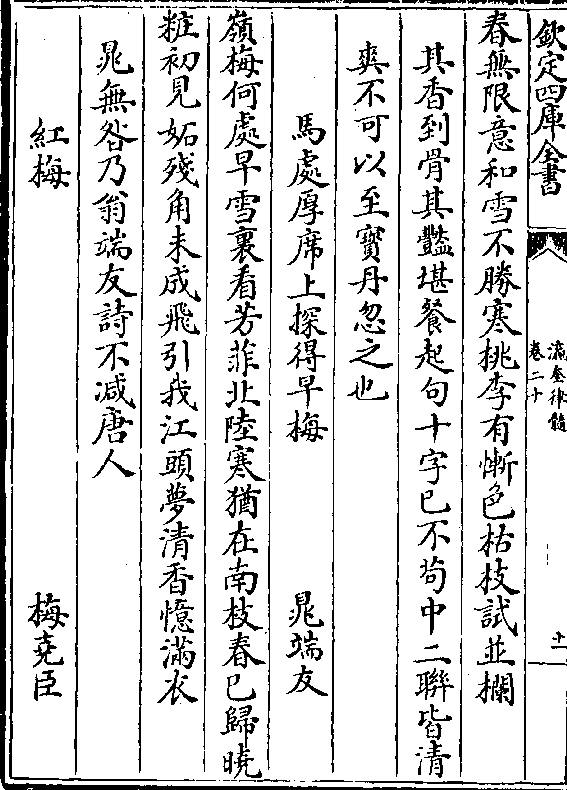 欽定四庫全書
瀛奎律髓
卷二十
十一
春無限意和雪不勝寒桃李有慚色枯枝試並欄
其香到骨其豔堪餐起句十字已不茍中二聯皆清
爽不可以至寶丹忽之也
馬處厚席上探得早梅 晁端友
嶺梅何處早雪裏看芳菲北陸寒猶在南枝春已歸曉
粧初見妬殘角未成飛引我江頭夢清香憶滿衣
晁無咎乃翁端友詩不减唐人
紅梅 梅堯臣